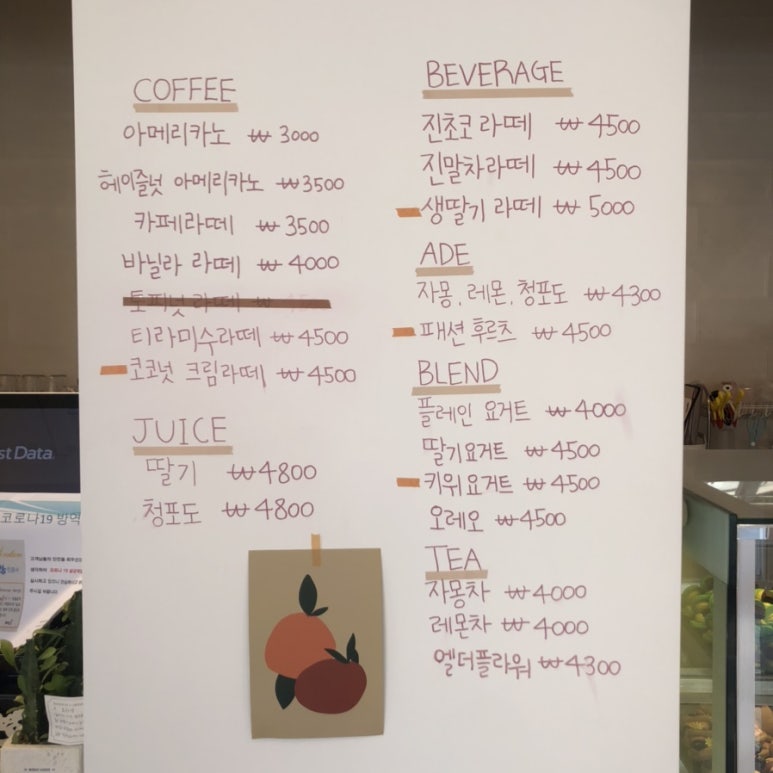 COFFEE
아메리카노 ₩ 3000
헤이즐넛 아메리카노 ₩3500
카페라떼 ₩3500
바닐라 라떼 ₩ 4000
토피넛 라떼 ₩
티라미수라떼 ₩4500
코코넛 크림라떼 ₩4500
JUICE
딸기 ₩4800
청포도 ₩4800
BEVERAGE
진초코 라떼 ₩4500
진말차라떼 ₩4500
생딸기 라떼 ₩ 5000
ADE
자몽, 레몬, 청포도 ₩4300
패션후르츠 ₩ 4500
BLEND
플레인 요거트 ₩4000
딸기요거트 ₩4500
키위요거트 ₩4500
오레오 ₩4500
TEA
자몽차 ₩4000
레몬차 ₩4000
엘더플라워 ₩4300
st Data
코로나19 방역